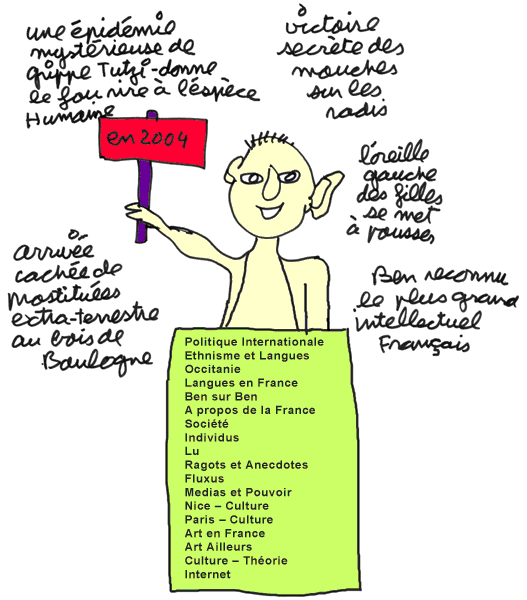 une épidémie
mystérieuse de
grippe Tutzi-donne
le fou rire à l'éspèce
Humaine
victoire
secrète des
mouches
sur les
radis
en 2004
l'oreille
gauche
des filles
se met
à pousser
arrivée
cachée de
prostituées
extra-terrestre
au bois de
Boulogne
Ben reconnu
le plus grand
intellectuel
Français
Politique Internationale
Ethnisme et Langues
Occitanie
Langues en France
Ben sur Ben
A propos de la France
Société
Individus
Lu
Ragots et Anecdotes
Fluxus
Medias et Pouvoir
Nice – Culture
Paris – Culture
Art en France
Art Ailleurs
Culture – Théorie
Internet